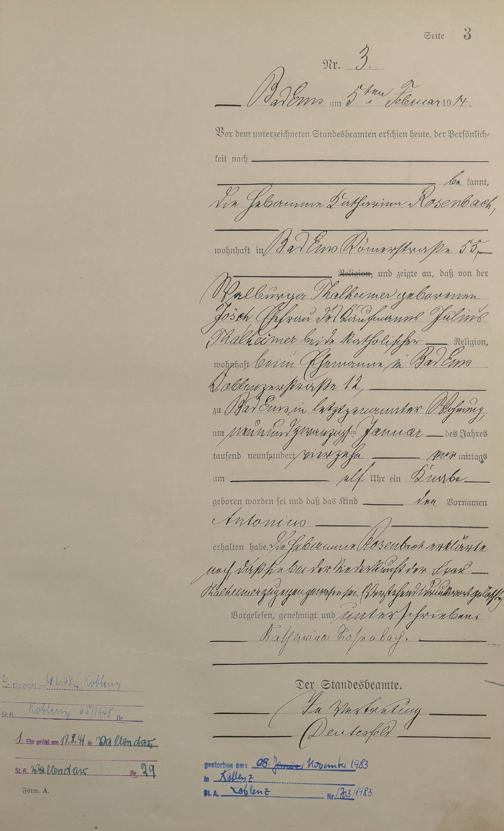 Seite 3
Nr. 3.
Bad Ems am 5ten Februar 1914.
Vor dem unterzeichneten Standesbeamten erschien heute, der Persönlich-
keit nach
be kannt,
die Hebamme Katharina Rosenbach,
wohnhaft in Bad Ems Römerstraße 55,
Religion, und zeigte an, daß von der
Walburga Thalheimer geborenen
Jösch Ehefrau des Kaufmanns Julius
Thalheimer beide Katholischer Religion,
wohnhaft beim Ehemanne in Bad Ems
Coblenzerstraße 12,
zu Bad Ems, in letztgenannter Wohnung
am neunundzwanzigsten Januar des Jahres
tausend neunhundert vierzehn vor mittags
um elf Uhr ein Knabe
geboren worden sei und daß das Kind den Vornamen
Antonius
erhalten habe. Die Hebamme Rosenbach erklärte
noch, daß sie bei der Niederkunft der Frau
Thalheimer zugegen gewesen sei.
Vorgelesen, genehmigt und unterschrieben
Katharina Rosenbach.
Der Standesbeamte.
In Vertretung
Koblenz
St. A. Koblenz 1948 Nr.
1. Ehe geschl. am 17.8.41 in Vallendar
St. A. Vallendar Nr. 29
Form. A.
gestorben am: 08. November 1983
in Koblenz
St. A. Koblenz Nr. 1983